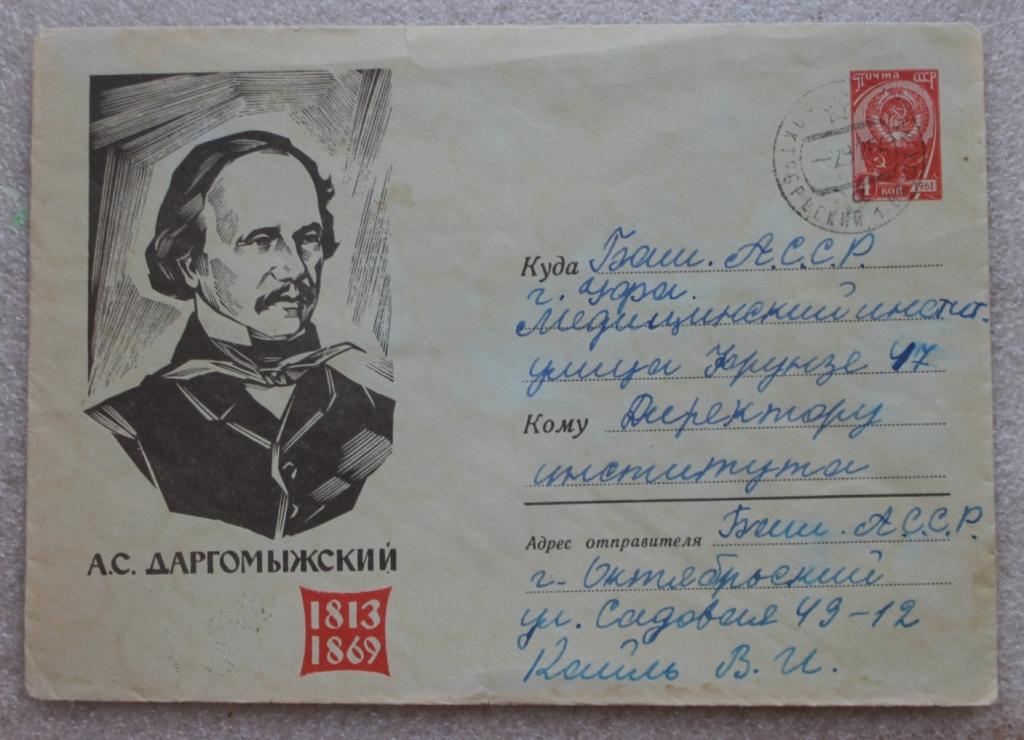 Почта СССР
4 коп 1961
ОКТЯБРЬСКИЙ
Куда Баш. А.С.С.Р.
г. Уфа.
Медицинский инстит.
улица Фрунзе 47
Кому Директору
института
Адрес отправителя Баш. А.С.С.Р.
г. Октябрьский
ул. Садовая 49-12
Кайль В. И.
А.С. ДАРГОМЫЖСКИЙ
1813
1869